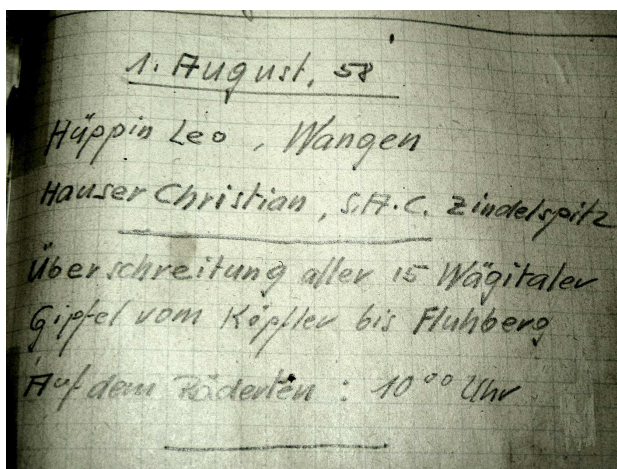 1. August, 58
Hüppin Leo, Wangen
Hauser Christian, S.A.C. Zindelspitz
Überschreitung aller 15 Wägitaler
Gipfel vom Köpfler bis Fluhberg
Auf dem Räderten : 10⁰⁰ Uhr